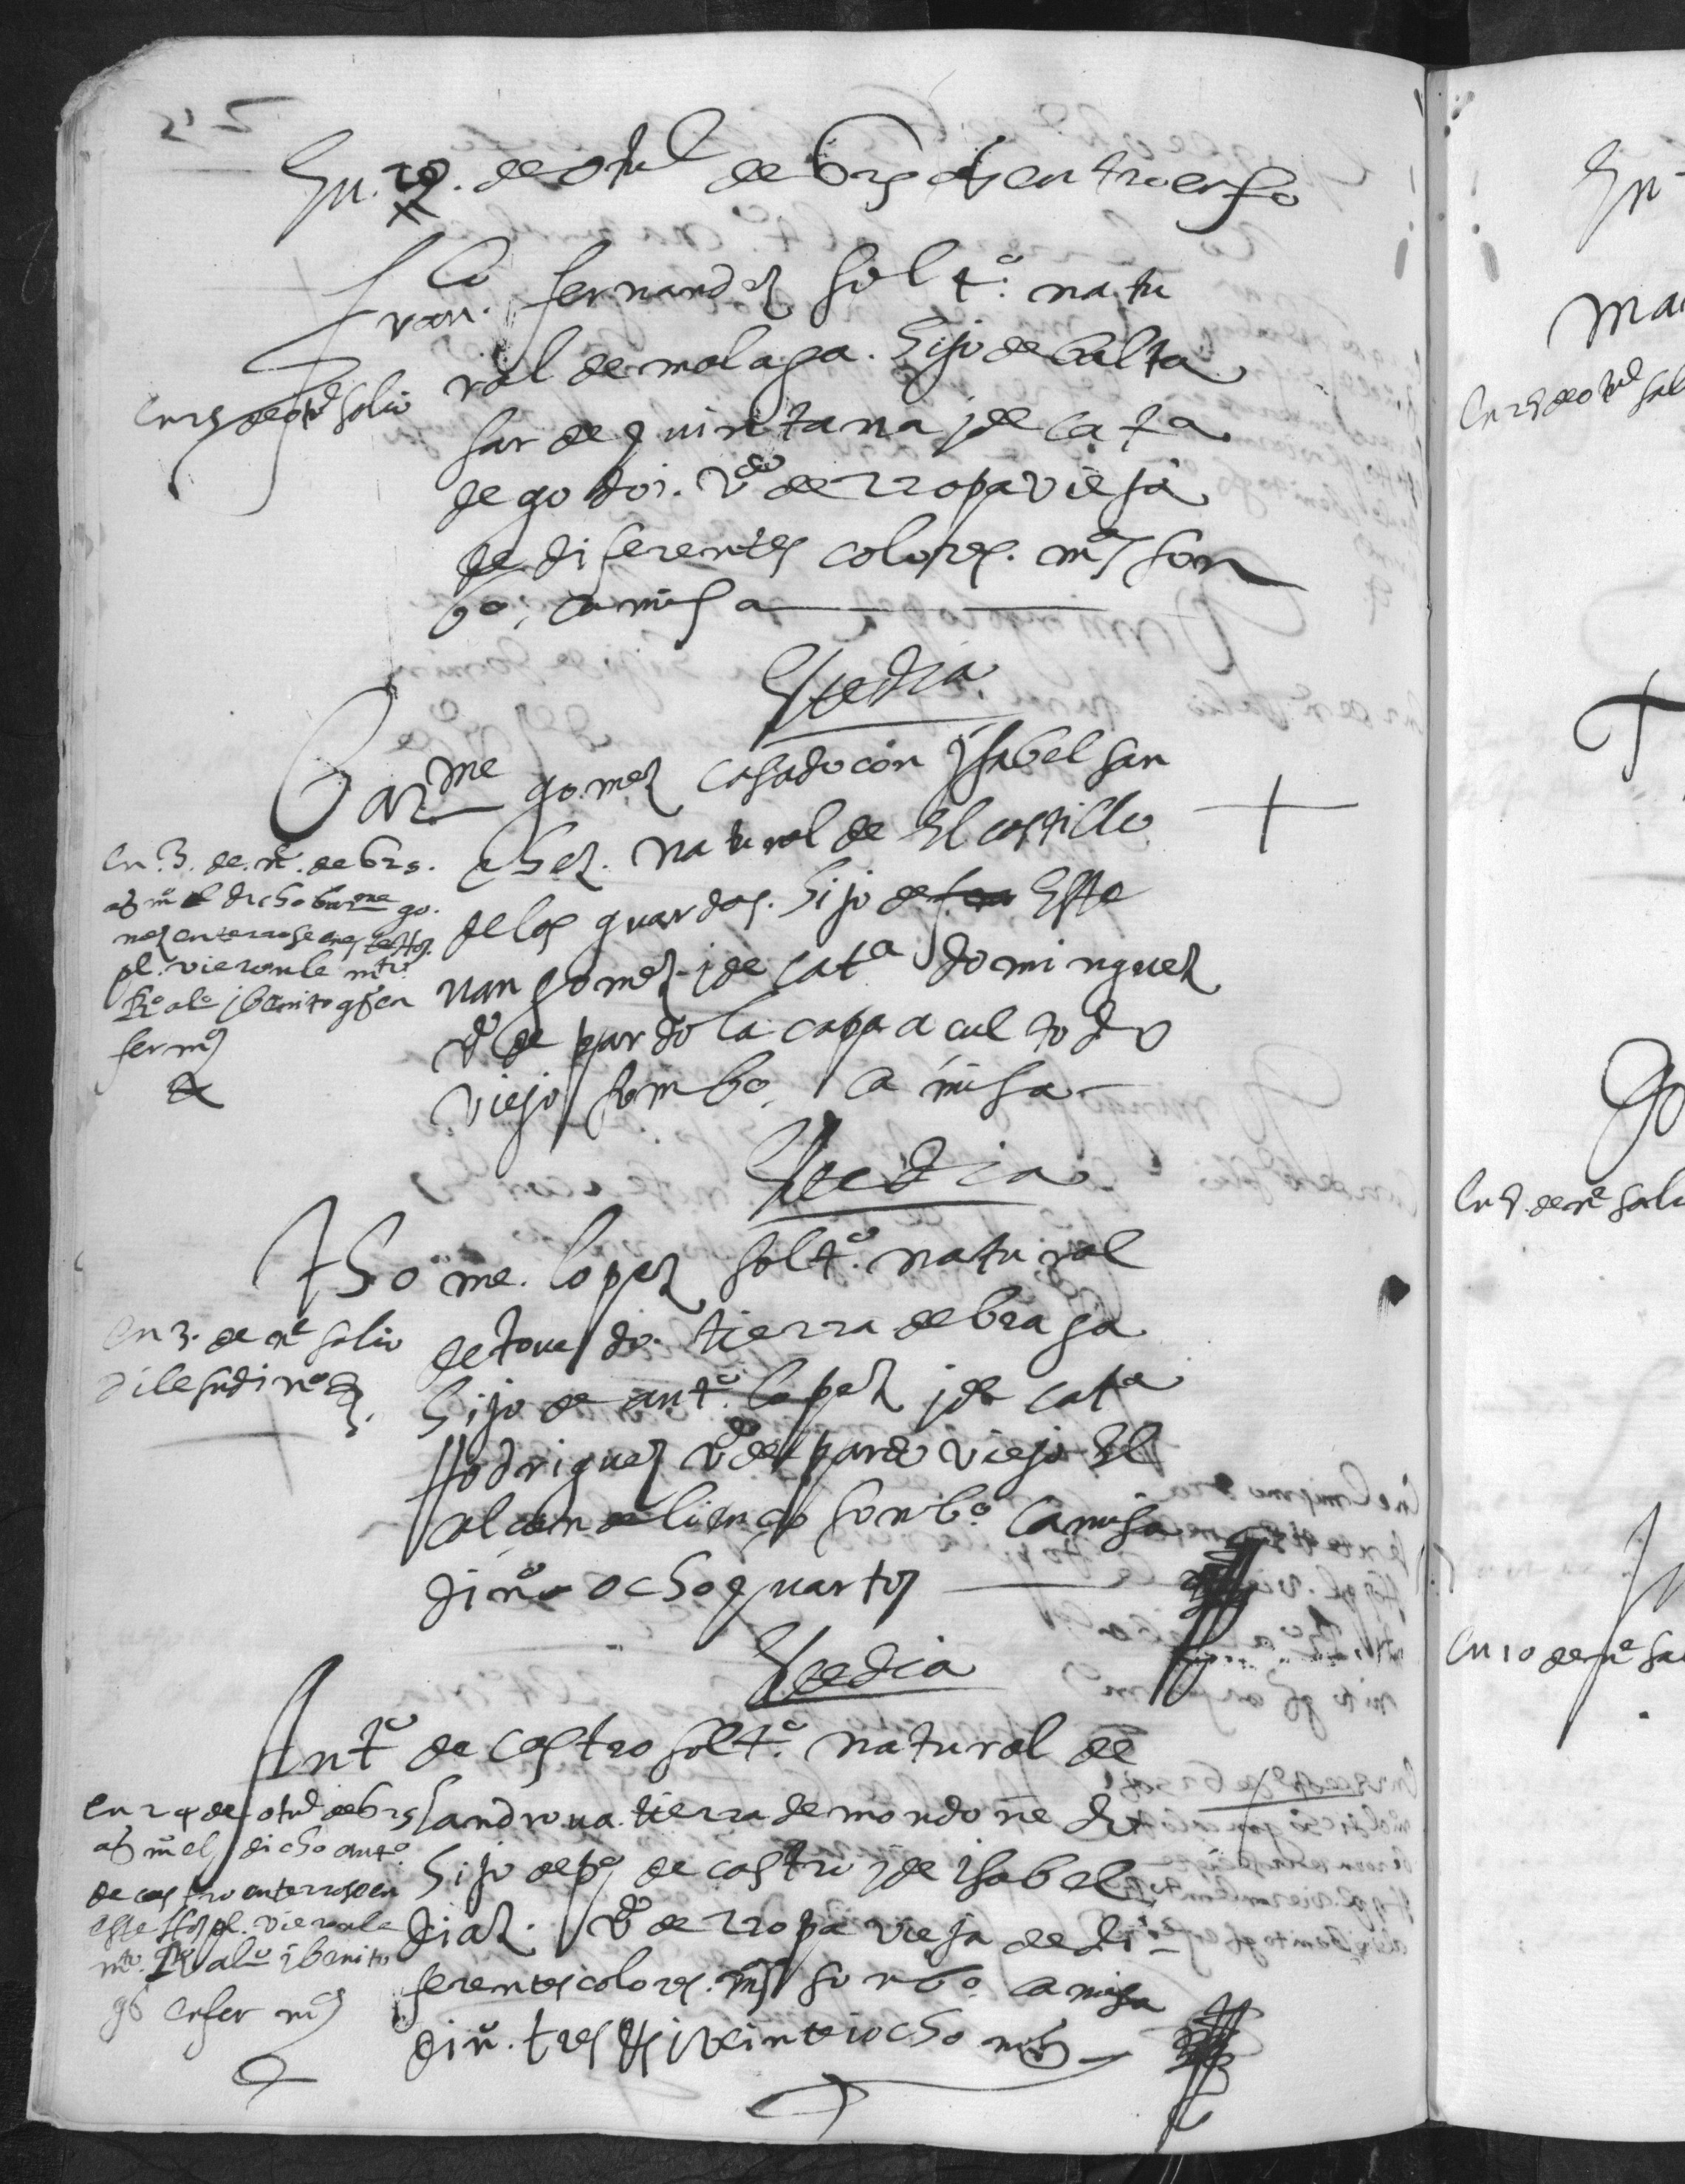 En. 19. de otue de 625 As entro enfo
franco fernandez solto. natu
ral de malaga. hijo de balta
sar de quintana j de cata
de godoi. vdo de rropa vieja
de diferentes colores. ms son
bo. camisa
En 29 de otue salio
Este dia
Barme gomez casado con Ysabel san
chez. natural de El castillo
de los guardas. hijo de Este
uan gomez j de cata dominguez
vdo de pardo la capa acul todo
viejo sombo. camisa
En 3. de ne. de 625.
as mo el dicho barme go
mez enterrose en este Hos
pl. vieronle mor.
alo j benito gs en
fermos
Este dia
thome. lopez solto. natural
de tierra de braga
hijo de anto. lopez j de cata
Rodriguez vdo de pardo viejo El
calcon de lienço sonbo. camisa
diro ocho quartos
En 3. de ne salio
dile su diro
Este dia
Anto de castro solto. natural de
Landroua. tierra de mondoñedo
hijo de po de castro j de isabel
diaz. vdo de rropa vieja de di-
ferentes colores. ms sonbo. camisa
din. tres Rs i veinte iocho ms
En 24 de otue de 625
as mo el dicho anto.
de castro enterrose en
este Hospl. vieronle
mor. alo j benito
gs enfermos
En
Ma
En 29 de otue sal
Go
En 9. de ne sali
En 10 de ne sa